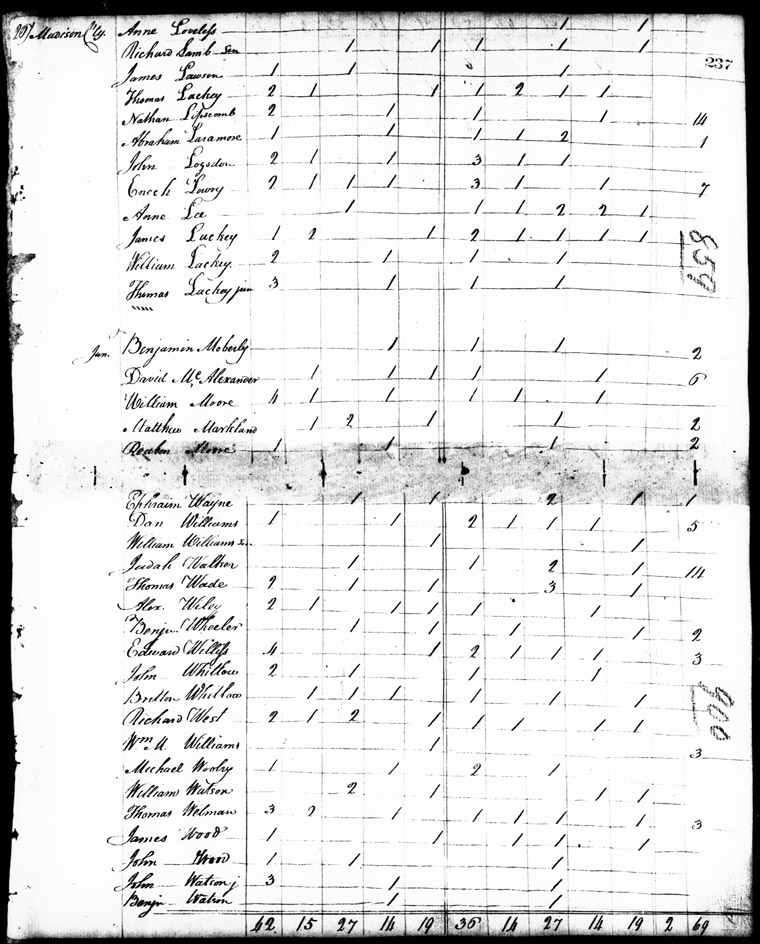 207 Madison Cty. Anne Loveless 1 1
Richard Lamb Sen 1 1 1 1 1
237
James Lawson 1 1 1
Thomas Lackey 2 1 1 1 2 1 1
Nathan Lipscomb 2 1 1 1 14
Abraham Laramore 1 1 1 1 2 1
John Logsdon 2 1 1 3 1 1
Enoch Lowry 2 1 1 1 3 1 1 7
Anne Lee 1 1 1 2 2 1
James Lackey 1 2 1 2 1 1 1 1
William Lackey 2 1 1 1
859
Thomas Lackey jun 3 1 1 1
Jun. Benjamin Moberly 1 1 1 2
David Mc Alexander 1 1 1 1 1 6
William Moore 4 1 1 1 1 1
Matthew Markland 1 2 1 1 2
Reuben Moore 1 1 1 2
Ephraim Wayne 1 1 2 1 1
Dan Williams 1 1 2 1 1 1 5
William Williams 1 1
Judah Walker 1 1 2 1 14
Thomas Wade 2 1 1 3 1
Alex. Wiley 2 1 1 1 1 1
Benjn. Wheeler 1 1 1 1 2
Edward Willess 4 1 2 1 1 1 3
John Whitlow 2 1 1 1
Britton Whitlow 1 1 1 1 1 1
900
Richard West 2 1 2 1 1 1 1 1
Wm M Williams 1 3
Michael Woolry 1 1 2 1
William Watson 2 1 1 1
Thomas Welman 3 2 1 1 1 1 1 3
James Wood 1 1 1 1 1
John Wood 1 1 1
John Watson j 3 1 1
Benjn Watson 1 1
42 15 27 14 19 36 14 27 14 19 2 69